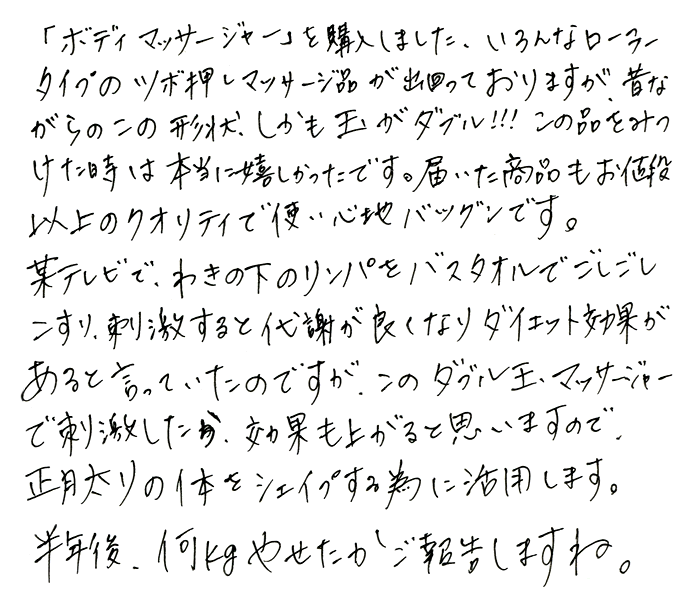 「ボディマッサージャー」を購入しました。いろんなローラー
タイプのツボ押しマッサージ品が出回っておりますが、昔な
がらのこの形状、しかも玉がダブル!!! この品をみつ
けた時は本当に嬉しかったです。届いた商品もお値段
以上のクオリティで使い心地バツグンです。
某テレビで、わきの下のリンパをバスタオルでごしごし
こすり、刺激すると代謝が良くなりダイエット効果が
あると言っていたのですが、このダブル玉、マッサージャー
で刺激したら、効果も上がると思いますので、
正月太りの体をシェイプする為に活用します。
半年後、何kgやせたかご報告しますね。